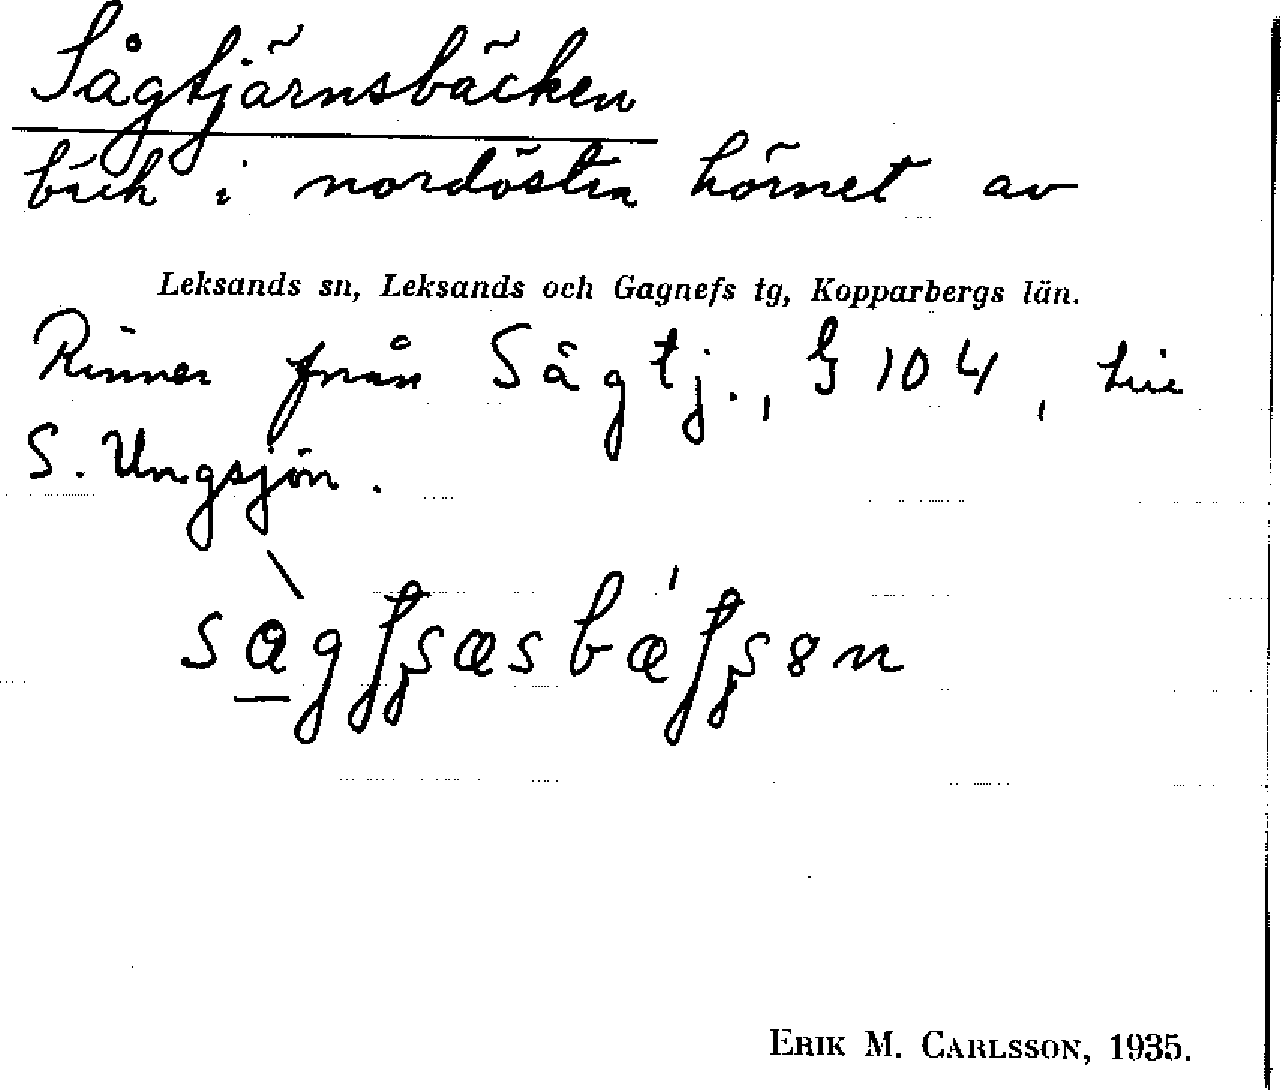 Sågtjärnsbäcken
bäck i nordöstra hörnet av
Leksands sn, Leksands och Gagnefs tg, Kopparbergs län.
Rinner från Sågtj., G 104, till
S. Ungsjön.
ERIK M. CARLSSON, 1935.